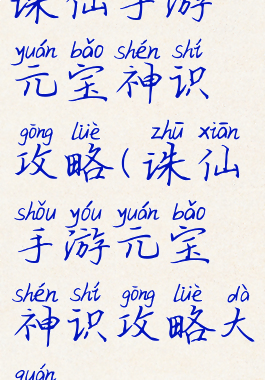 诛仙手游
yuán bǎo shén shí
元宝神识
gōng lüè zhū xiān
攻略(诛仙
shǒu yóu yuán bǎo
手游元宝
shén shí gōng lüè dà
神识攻略大
quán